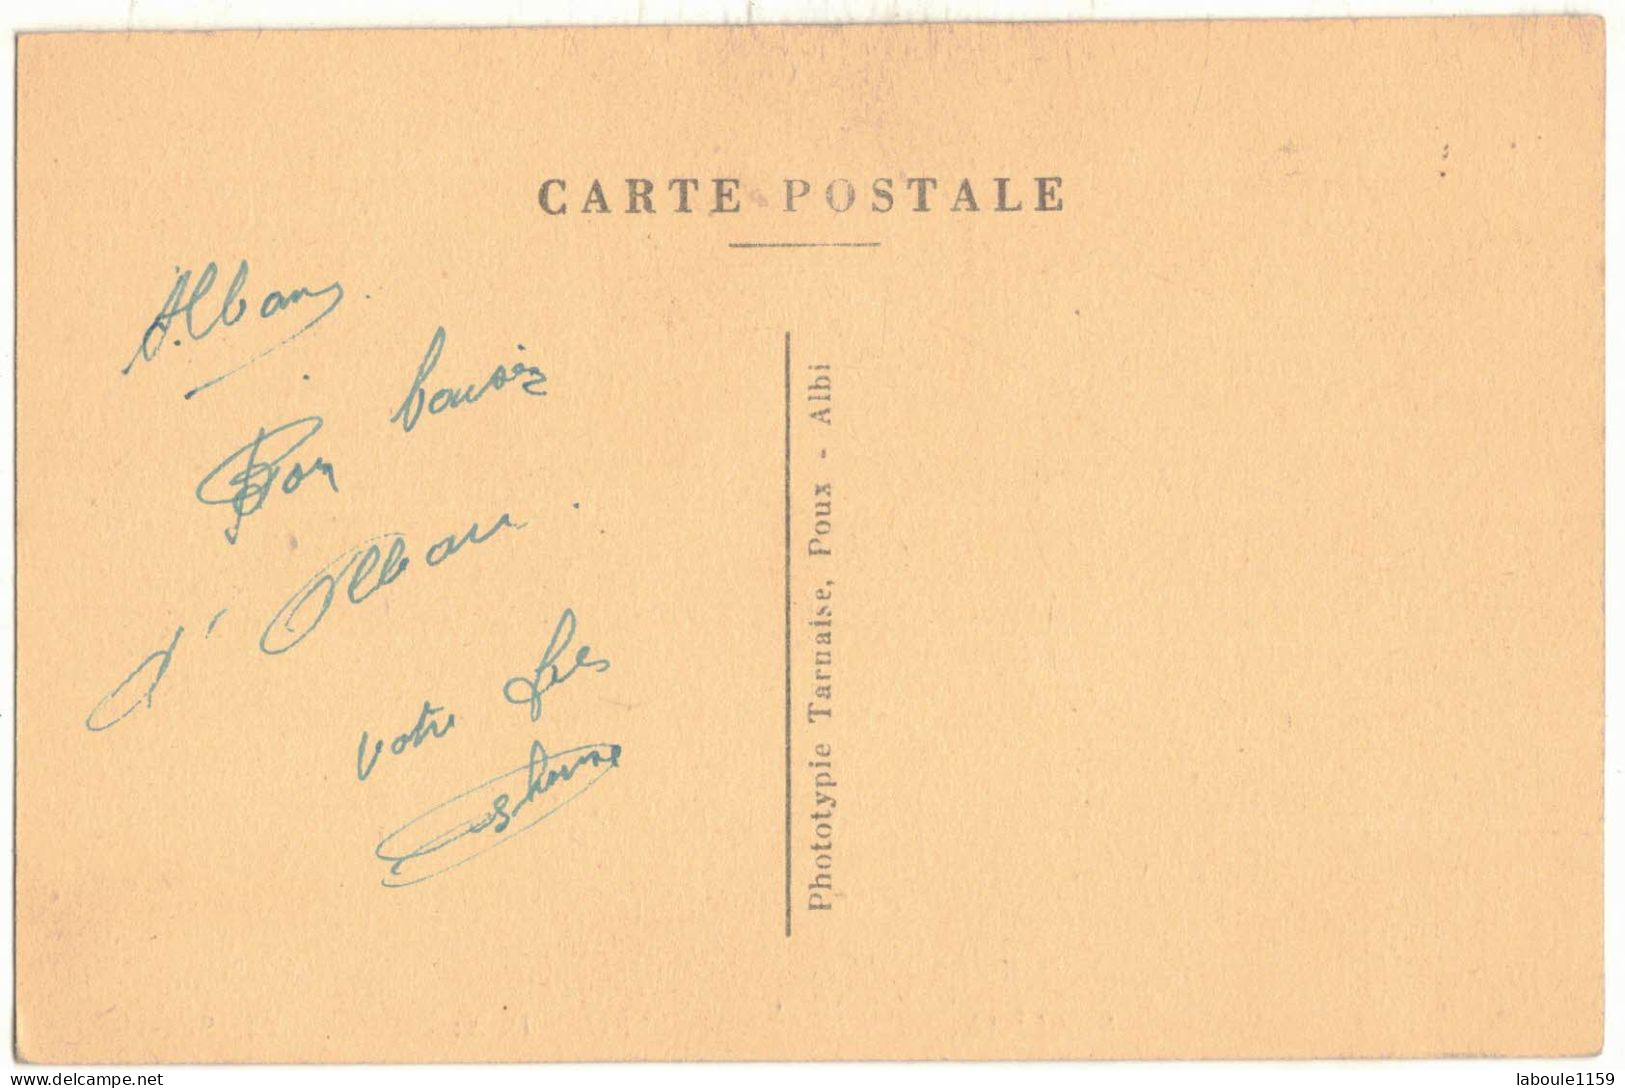 CARTE POSTALE
Alban.
Bon
d'Alban.
votre fils
Phototypie Tarnaise, Poux - Albi
www.delcampe.net
laboule1159